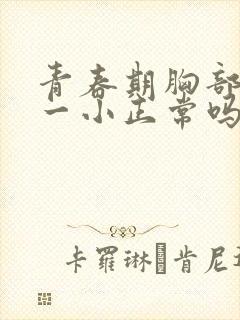 青春期胸部
一小正常吗
卡羅琳 肯尼